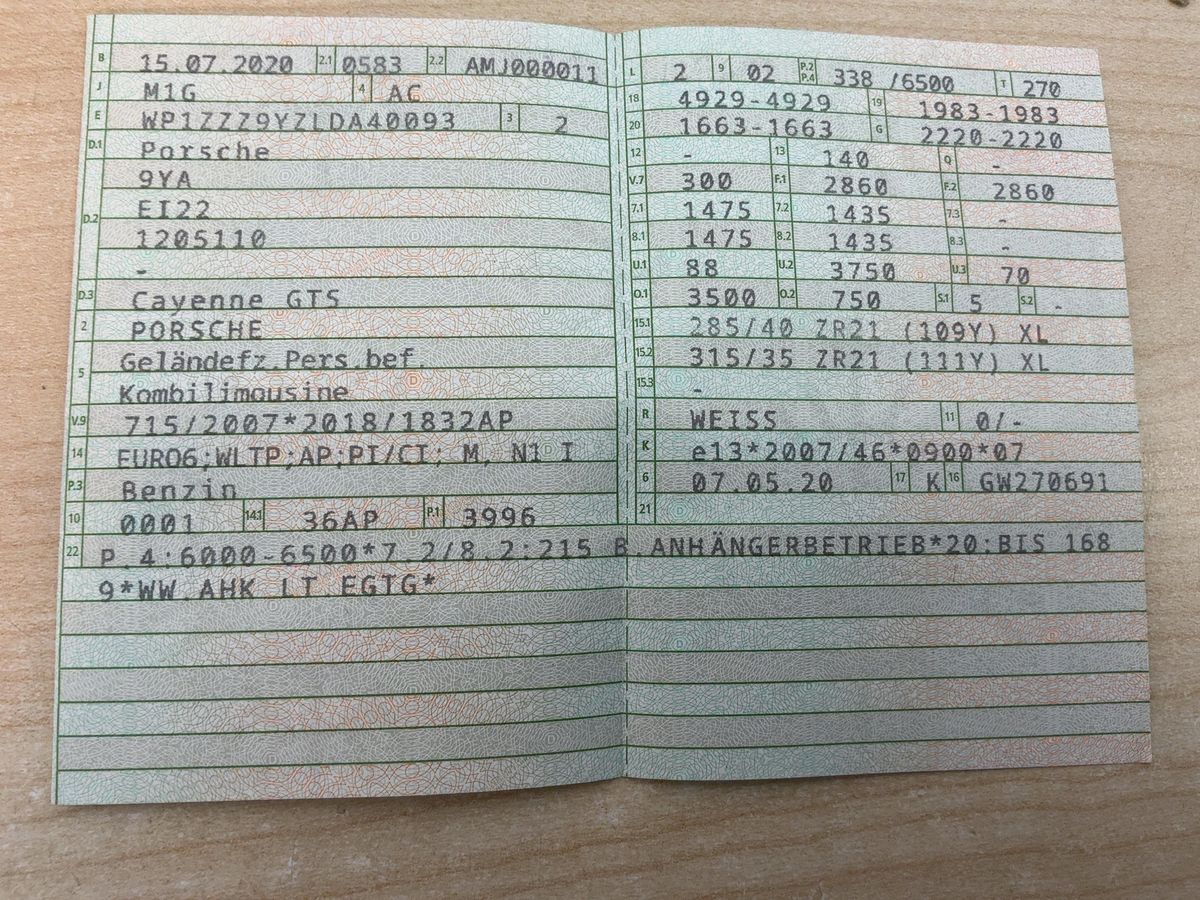 B 15.07.2020 2.1 0583 2.2 AMJ000011
J M1G 4 AC
E WP1ZZZ9YZLDA40093 3 2
D.1 Porsche
9YA
D.2 EI22
1205110
-
D.3 Cayenne GTS
2 PORSCHE
5 Geländefz.Pers.bef.
Kombilimousine
V.9 715/2007*2018/1832AP
14 EURO6;WLTP;AP;PI/CI; M, N1 I
P.3 Benzin
10 0001 14.1 36AP P.1 3996
L 2 9 02 P.2 P.4 338 /6500 T 270
18 4929-4929 19 1983-1983
20 1663-1663 G 2220-2220
12 - 13 140 Q -
V.7 300 F.1 2860 F.2 2860
7.1 1475 7.2 1435 7.3 -
8.1 1475 8.2 1435 8.3 -
U.1 88 U.2 3750 U.3 70
O.1 3500 O.2 750 S.1 5 S.2 -
15.1 285/40 ZR21 (109Y) XL
15.2 315/35 ZR21 (111Y) XL
15.3 -
R WEISS 11 0/-
K e13*2007/46*0900*07
6 07.05.20 17 K 16 GW270691
21
22 P.4:6000-6500*7.2/8.2:215 B.ANHÄNGERBETRIEB*20:BIS 168
9*WW.AHK LT EGTG*